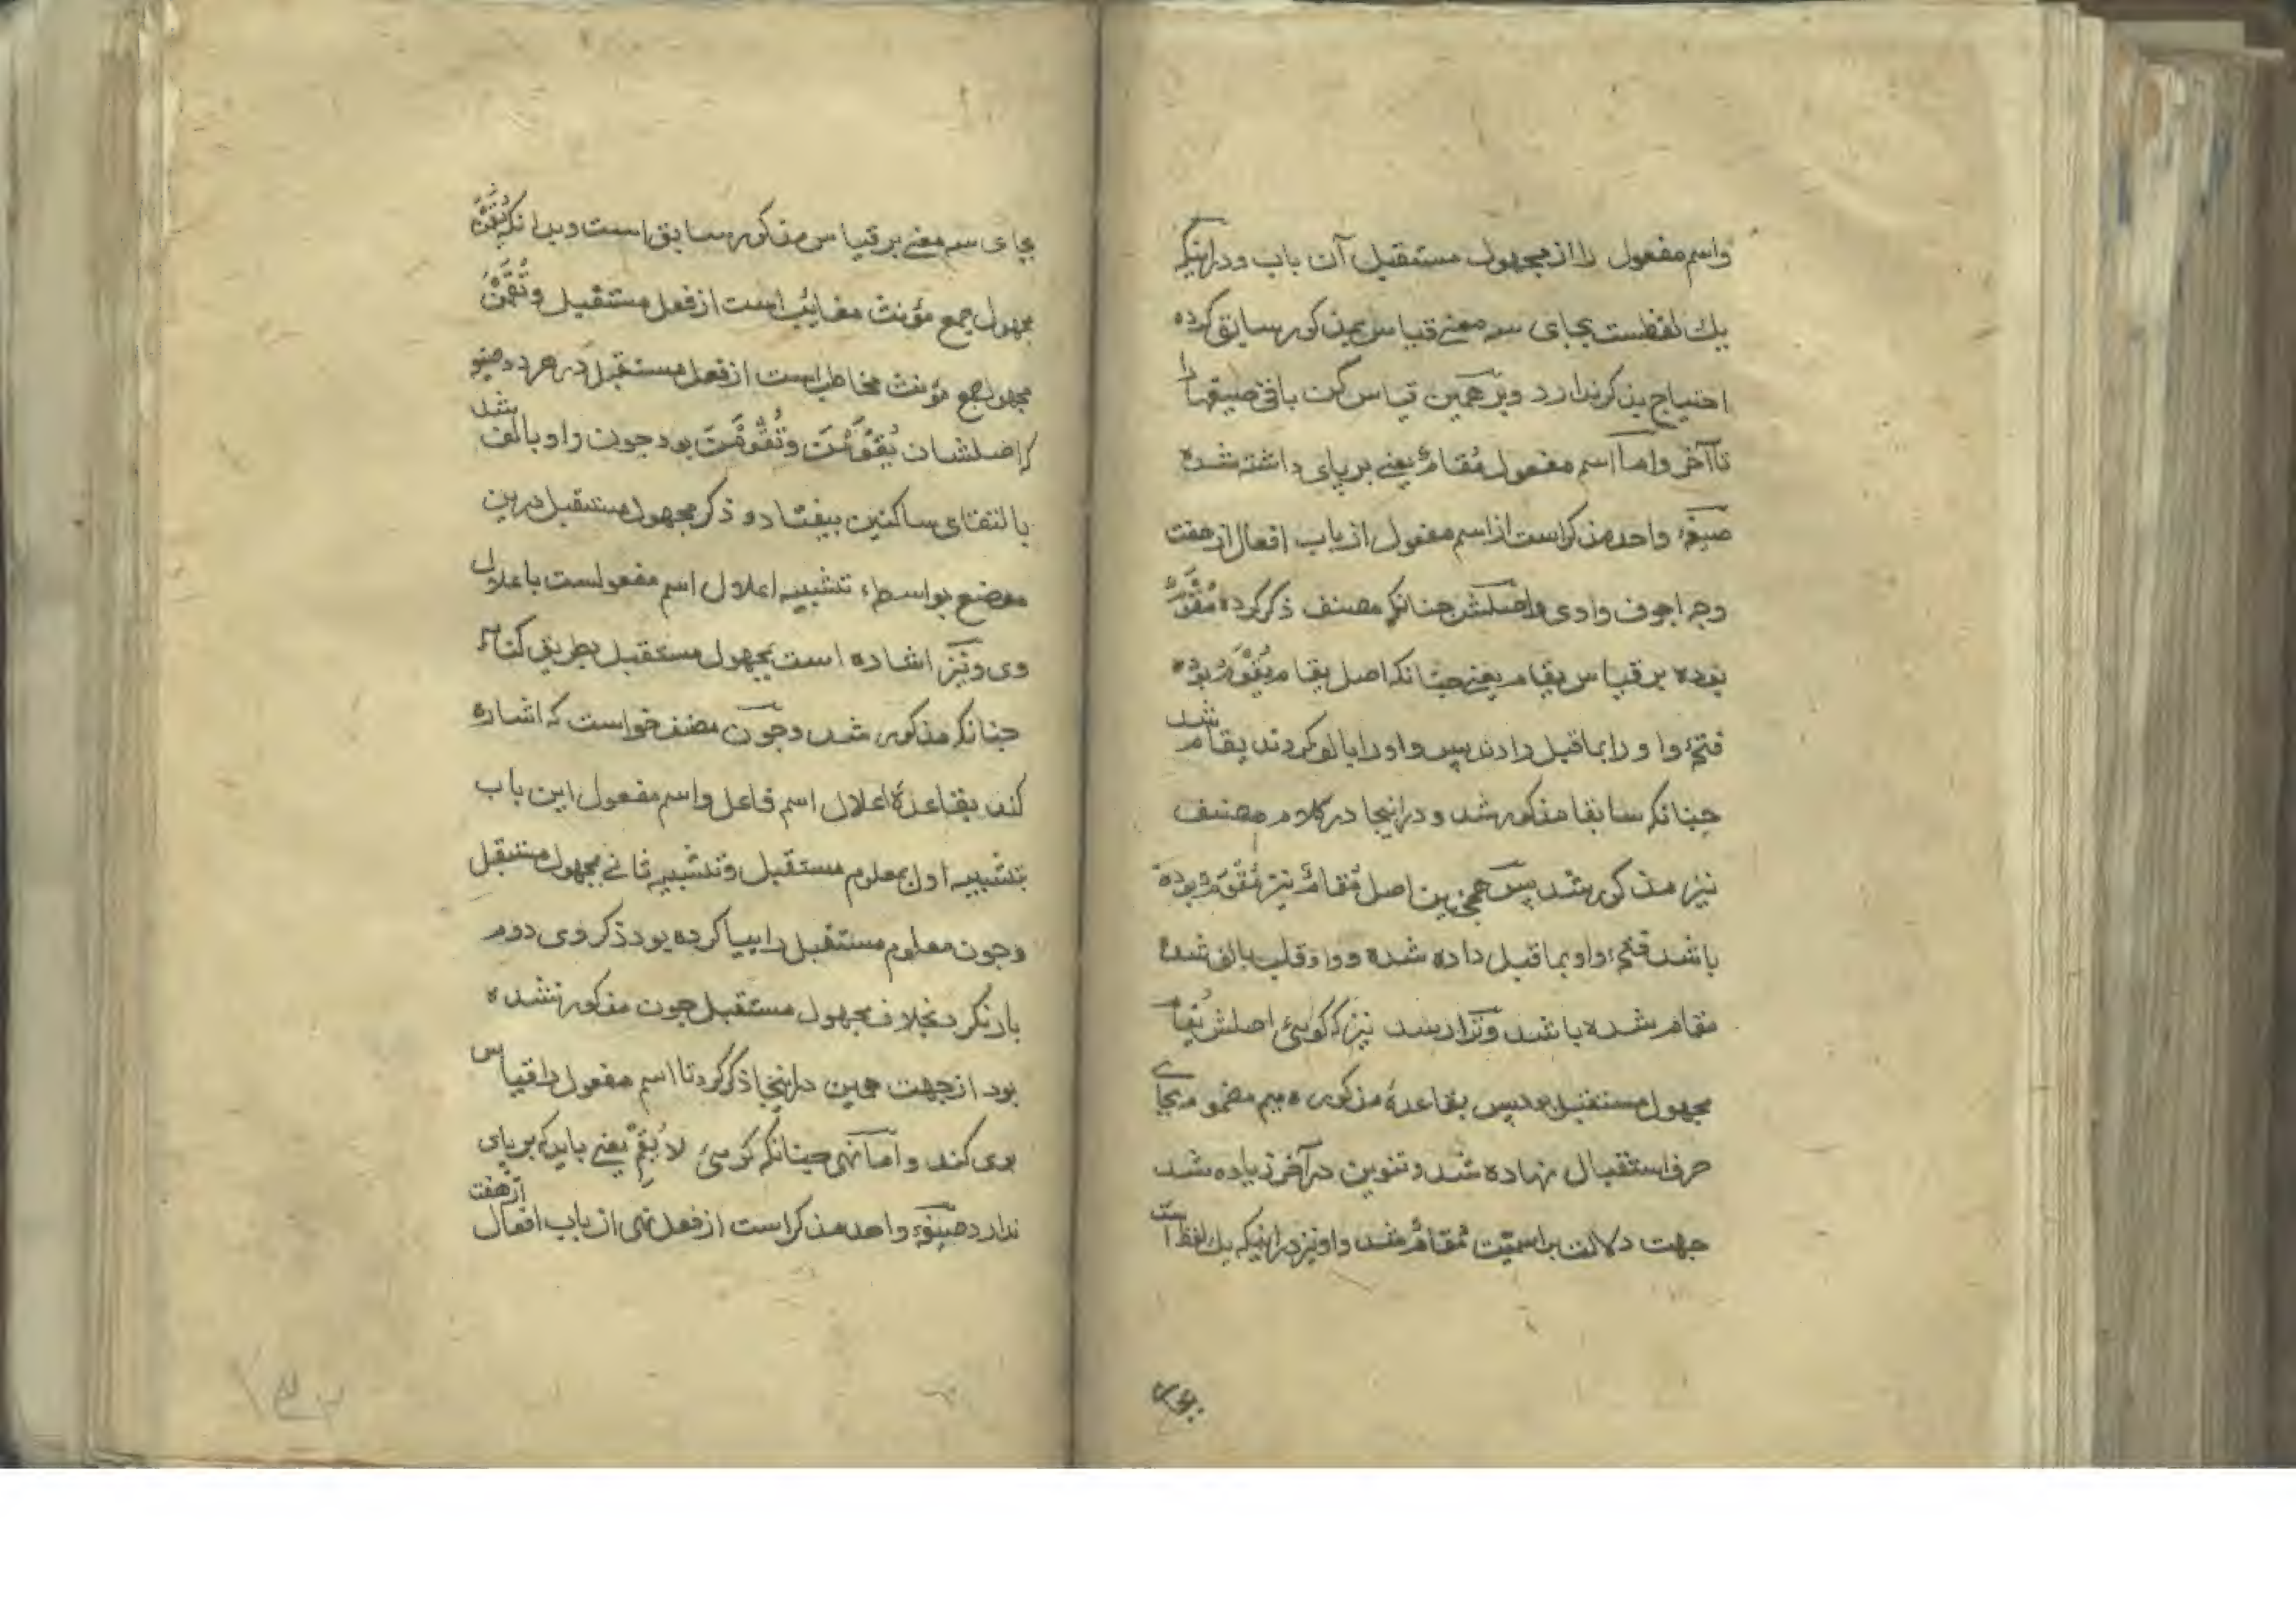 واسم مفعول را از مجهول مستقبل آن باب و در اینکه
یك لفظست بجای سه معنے قیاس بمذکور سابق کرده
احتیاج بذکر ندارد و بر همین قیاس کن باقی صیغها را
تا آخر و اما اسم مفعول مُقَامٌ یعنے بر پای داشته شده
صیغهٔ واحد مذکر است از اسم مفعول از باب افعال از هفت
وجه اجوف واوی و اصلش جنانکه مصنف ذکر کرده مُقْوَمٌ
بوده بر قیاس یقام یعنے جنانکه اصل یقام یُقْوَمُ بوده
فتحهٔ واو را بماقبل دادند پس واو را بالف کردند یقام شد
جنانکه سابقا مذکور شد و در اینجا در کلام مصنف
نیز مذکور شد پس همچنین اصل مُقَامٌ نیز مُقْوَمٌ بوده
باشد فتحهٔ واو بماقبل داده شده و واو قلب بالف شده
مقام شده باشد و ترا رسد نیز که گوئی اصلش یُقَام
مجهول مستقبل بود پس بقاعدهٔ مذکوره میم مضموم بجای
حرف استقبال نهاده شد و تنوین در آخر زیاده شد
جهت دلالت بر اسمیّت مُقَامٌ شد و او نیز در اینکه یك لفظ است
بجای سه معنے بر قیاس مذکور سابق است و بدانکه یُقَمْنَ
مجهول جمع مؤنث مغایب است از فعل مستقبل و تُقَمْنَ
مجهول جمع مؤنث مخاطب است از فعل مستقبل در هر دو صیغه
که اصلشان یُقْوَمْنَ و تُقْوَمْنَ بود جون واو بالف شد
بالتقای ساکنین بیفتاد و ذکر مجهول مستقبل درین
موضع بواسطهٔ تشبیه اعلال اسم مفعولست باعلال
وی و نیز اشاره است بمجهول مستقبل بطریق کنایه
جنانکه مذکور شد و جون مصنف خواست که اشاره
کند بقاعدهٔ اعلال اسم فاعل واسم مفعول این باب
بتشبیه اول بمعلوم مستقبل و تشبیه ثانے بمجهول مستقبل
و جون معلوم مستقبل را بیا کرده بود ذکر وی دوم
بار نکرد بخلاف مجهول مستقبل جون مذکور نشده
بود از جهت همین در اینجا ذکر کرد تا اسم مفعول را قیاس
بوی کند و اما نهی جنانکه گوئی لا یُقِمْ یعنے باید که بر پای
ندارد صیغهٔ واحد مذکر است از فعل نهی از باب افعال از هفت
۱۳۲